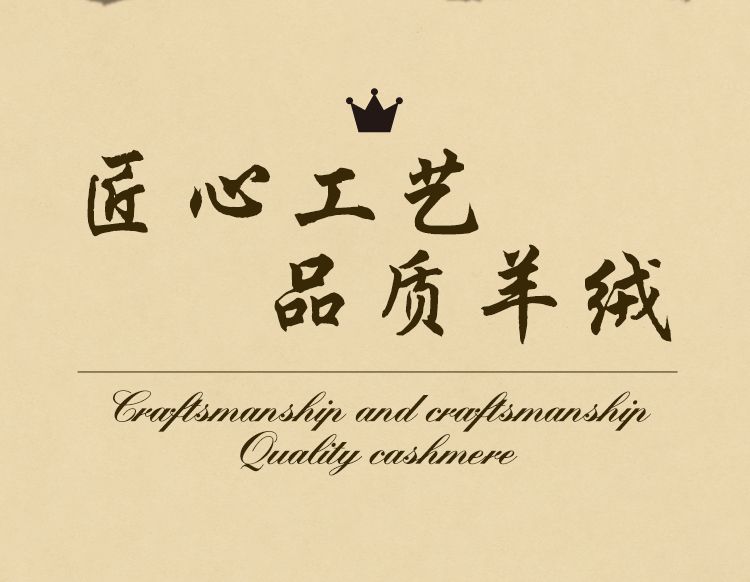 匠心工艺
品质羊绒
Craftsmanship and craftsmanship
Quality cashmere